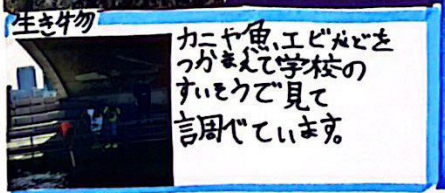 生き物
カニや魚、エビなどを
つかまえて学校の
すいそうで見て
調べています。